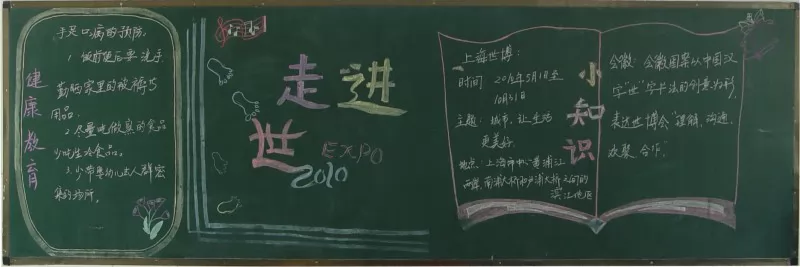 健康教育
手足口病的预防:
1. 饭前便后要洗手
勤晒家里的被褥与
用品。
2. 尽量吃做熟的食品
少吃生冷食品。
3. 少带婴幼儿去人群密
集的场所。
走进
世
EXPO
2010
小知识
上海世博:
时间 2010年5月1日至
10月31日
主题: 城市,让生活
更美好
地点: 上海市中心黄浦江
两岸,南浦大桥和卢浦大桥之间的
滨江地区
会徽: 会徽图案从中国汉
字"世"字书法的创意为形,
表达世博会"理解、沟通、
欢聚、合作。